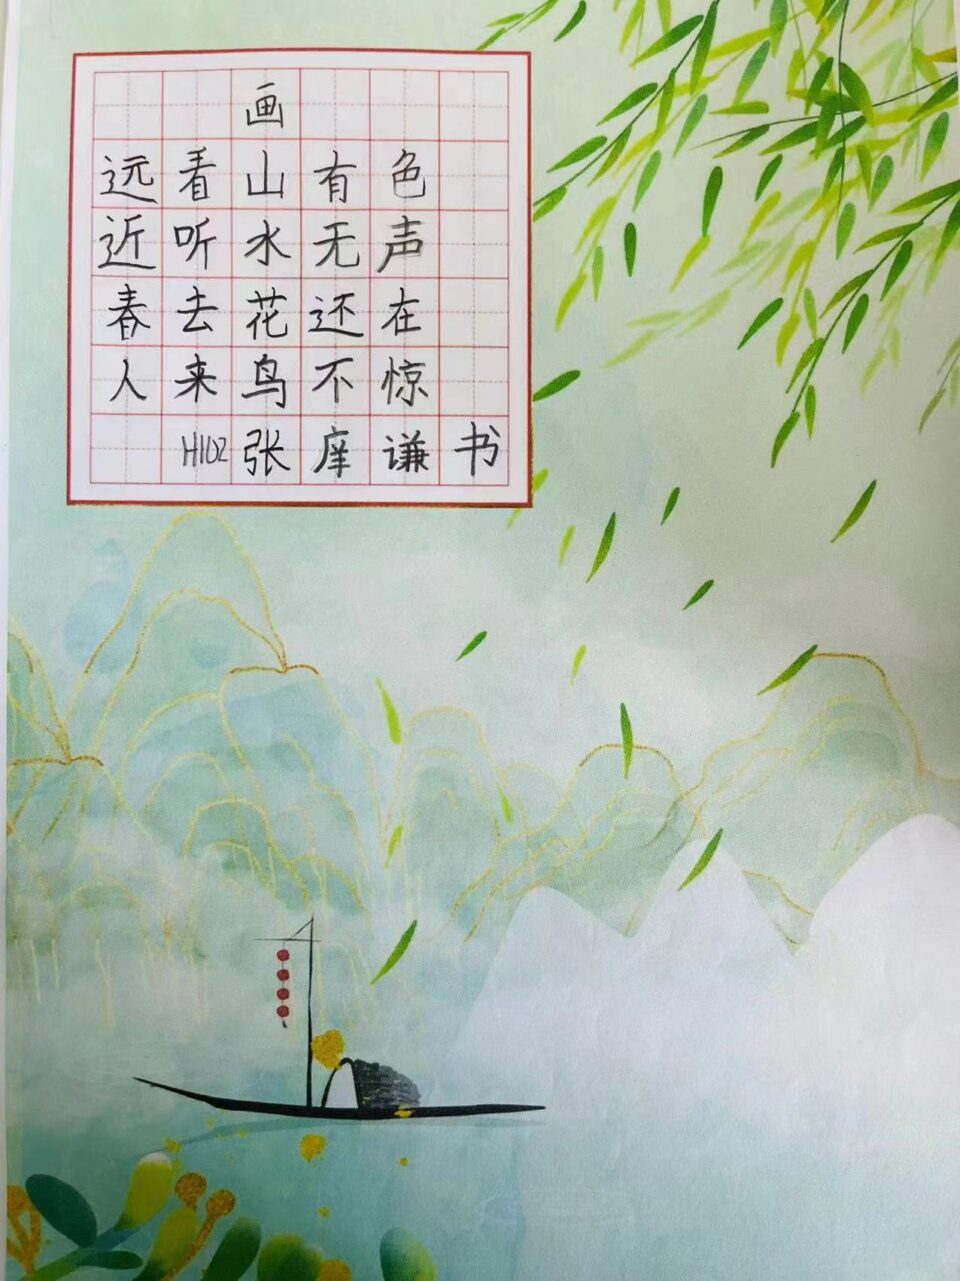 画
远看山有色
近听水无声
春去花还在
人来鸟不惊
H102张庠谦书